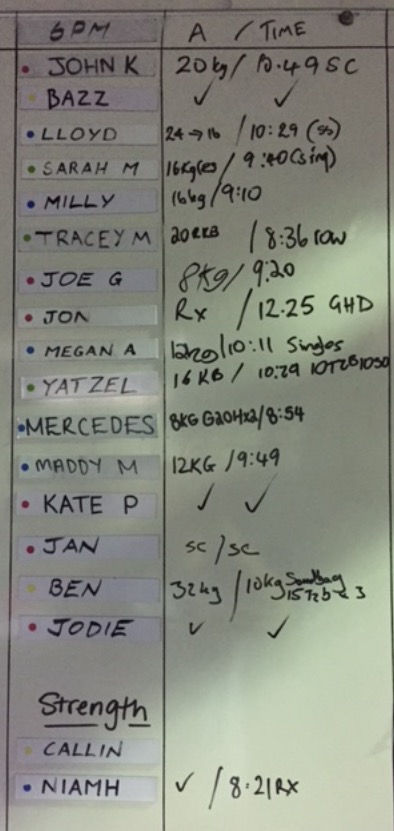 6PM A / TIME
JOHN K 20kg / 10.49 SC
BAZZ ✓ ✓
LLOYD 24→16 / 10:29 (ss)
SARAH M 16kg / 9:40 (sim)
MILLY 16kg / 9:10
TRACEY M 20 KB / 8:36 row
JOE G 8kg / 9:20
JON Rx / 12.25 GHD
MEGAN A 12kg / 10:11 Singles
YATZEL 16 KB / 10:29
MERCEDES 8KG G2OHx2 / 8:54
MADDY M 12KG / 9:49
KATE P ✓ ✓
JAN SC / SC
BEN 32kg / 10kg Sandbag
JODIE ✓ ✓
Strength
CALLIN
NIAMH ✓ / 8:21 RX